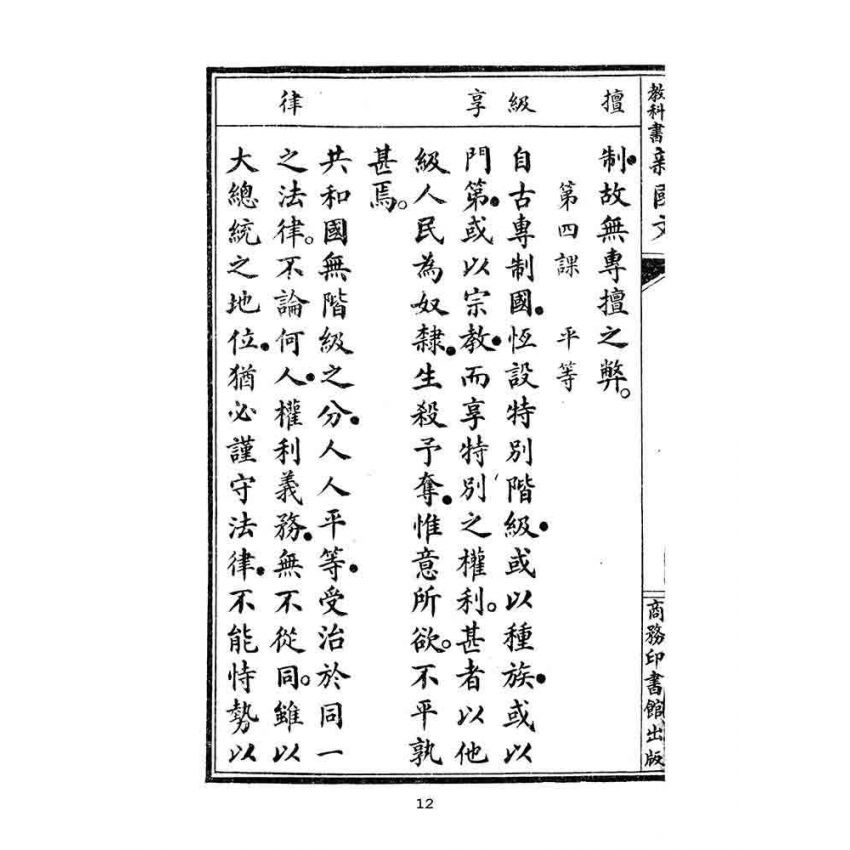 教科書新國文
商務印書館出版
擅
級
享
律
制·故無專擅之弊。
第四課 平等
自古專制國·恆設特別階級·或以種族·或以
門第·或以宗教·而享特別之權利。甚者以他
級人民為奴隸·生殺予奪·惟意所欲。不平孰
甚焉。
共和國無階級之分·人人平等·受治於同一
之法律。不論何人·權利義務·無不從同。雖以
大總統之地位·猶必謹守法律·不能恃勢以
12